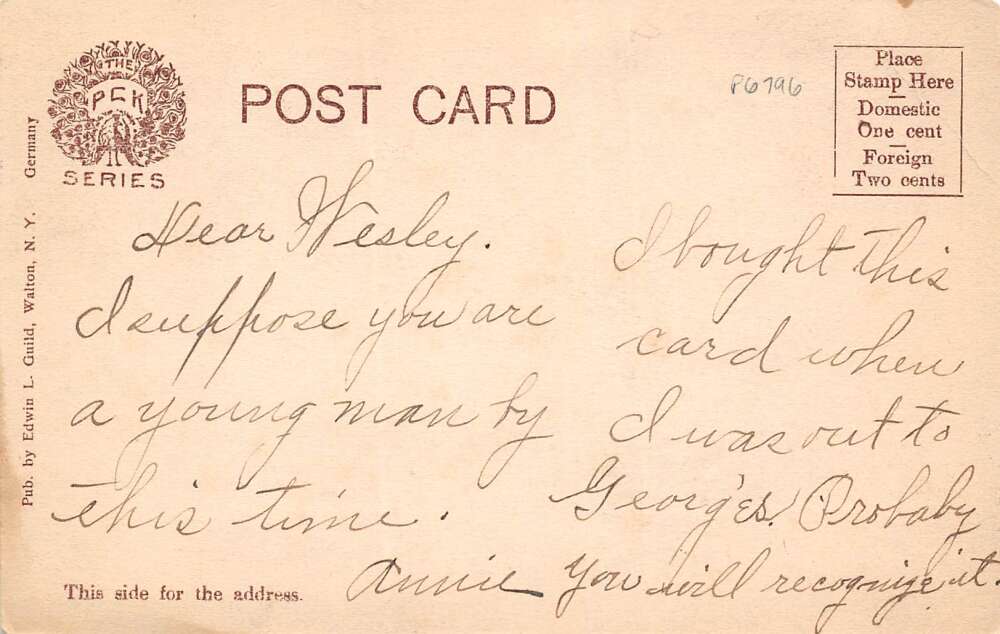 THE
PCK
SERIES
POST CARD
P6796
Place
Stamp Here
Domestic
One cent
Foreign
Two cents
Pub. by Edwin L. Guild, Walton, N. Y. Germany
Dear Wesley.
I suppose you are
a young man by
this time.
Annie
I bought this
card when
I was out to
George's. Probaby
You will recognize it.
This side for the address.